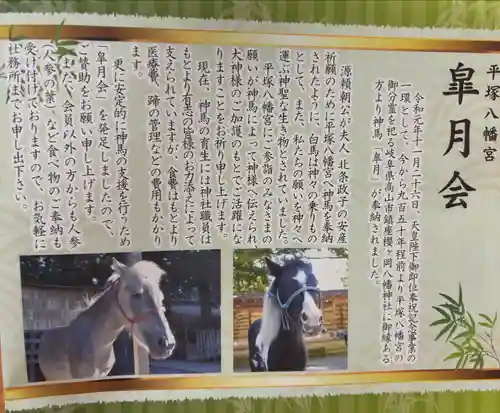 平塚八幡宮
皐月会
令和元年十一月二十六日、天皇陛下御即位奉祝記念事業の
一環として、今から九百五十年程前より平塚八幡宮の
御分霊を祀る岐阜県高山市鎮座櫻ヶ岡八幡神社に御縁ある
方より神馬「皐月」が奉納されました。
源頼朝公が夫人 北条政子の安産
祈願のために平塚八幡宮へ神馬を奉納
されたように、白馬は神々の乗りもの
として、また、私たちの願いを神々へ
運ぶ神聖な生き物とされていました。
平塚八幡宮にご参詣のみなさまの
願いが神馬によって神様へ伝えられ
大神様のご加護のもとでご活躍にな
りますことをお祈り申し上げます。
現在、神馬の育生には神社職員は
もとより有志の皆様のお力添えによって
支えられていますが、食費はもとより
医療費、蹄の管理などの費用もかかり
ます。
更に安定的に神馬の支援を行うため
「皐月会」を発足しましたので、
ご賛助をお願い申し上げます。
また、会員以外の方からも人参
（人参の葉）など食べ物のご奉納も
受け付けておりますので、お気軽に
社務所までお申し出下さい。